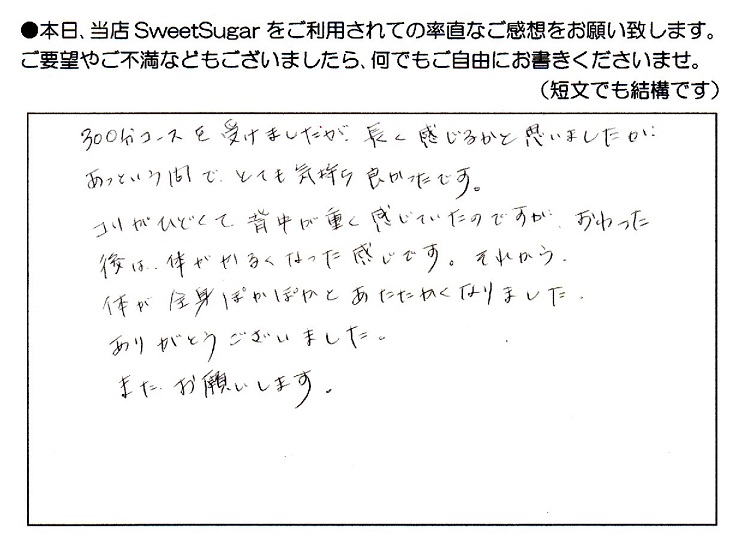 ●本日、当店SweetSugarをご利用されての率直なご感想をお願い致します。
ご要望やご不満などもございましたら、何でもご自由にお書きくださいませ。
（短文でも結構です）
300分コースを受けましたが、長く感じるかと思いましたが、
あっという間で、とても気持ち良かったです。
コリがひどくて、背中が重く感じていたのですが、おわった
後は、体がかるくなった感じです。それから、
体が全身ぽかぽかとあたたかくなりました。
ありがとうございました。
また、お願いします。